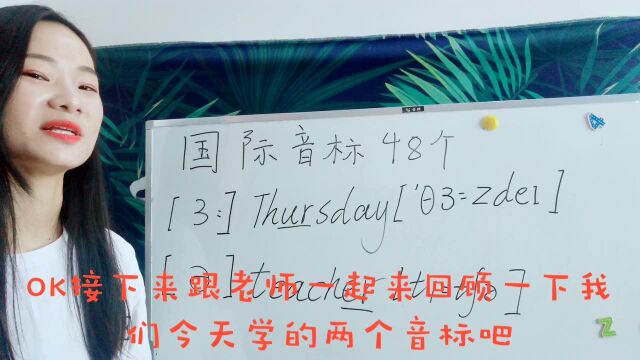 国际音标48个
[3:] Thursday['θ3=zdeı]
teacher
OK接下来跟老师一起来回顾一下我
们今天学的两个音标吧